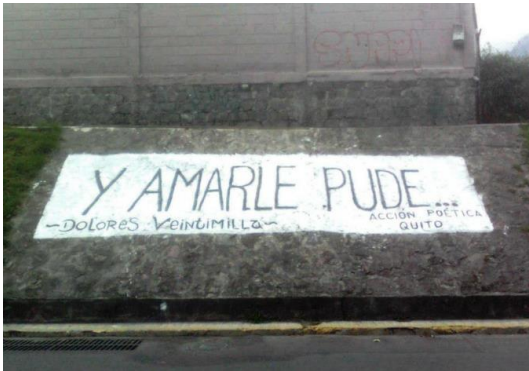 Y AMARLE PUDE...
~DOLORES VEINTIMILLA~
ACCIÓN POÉTICA
QUITO